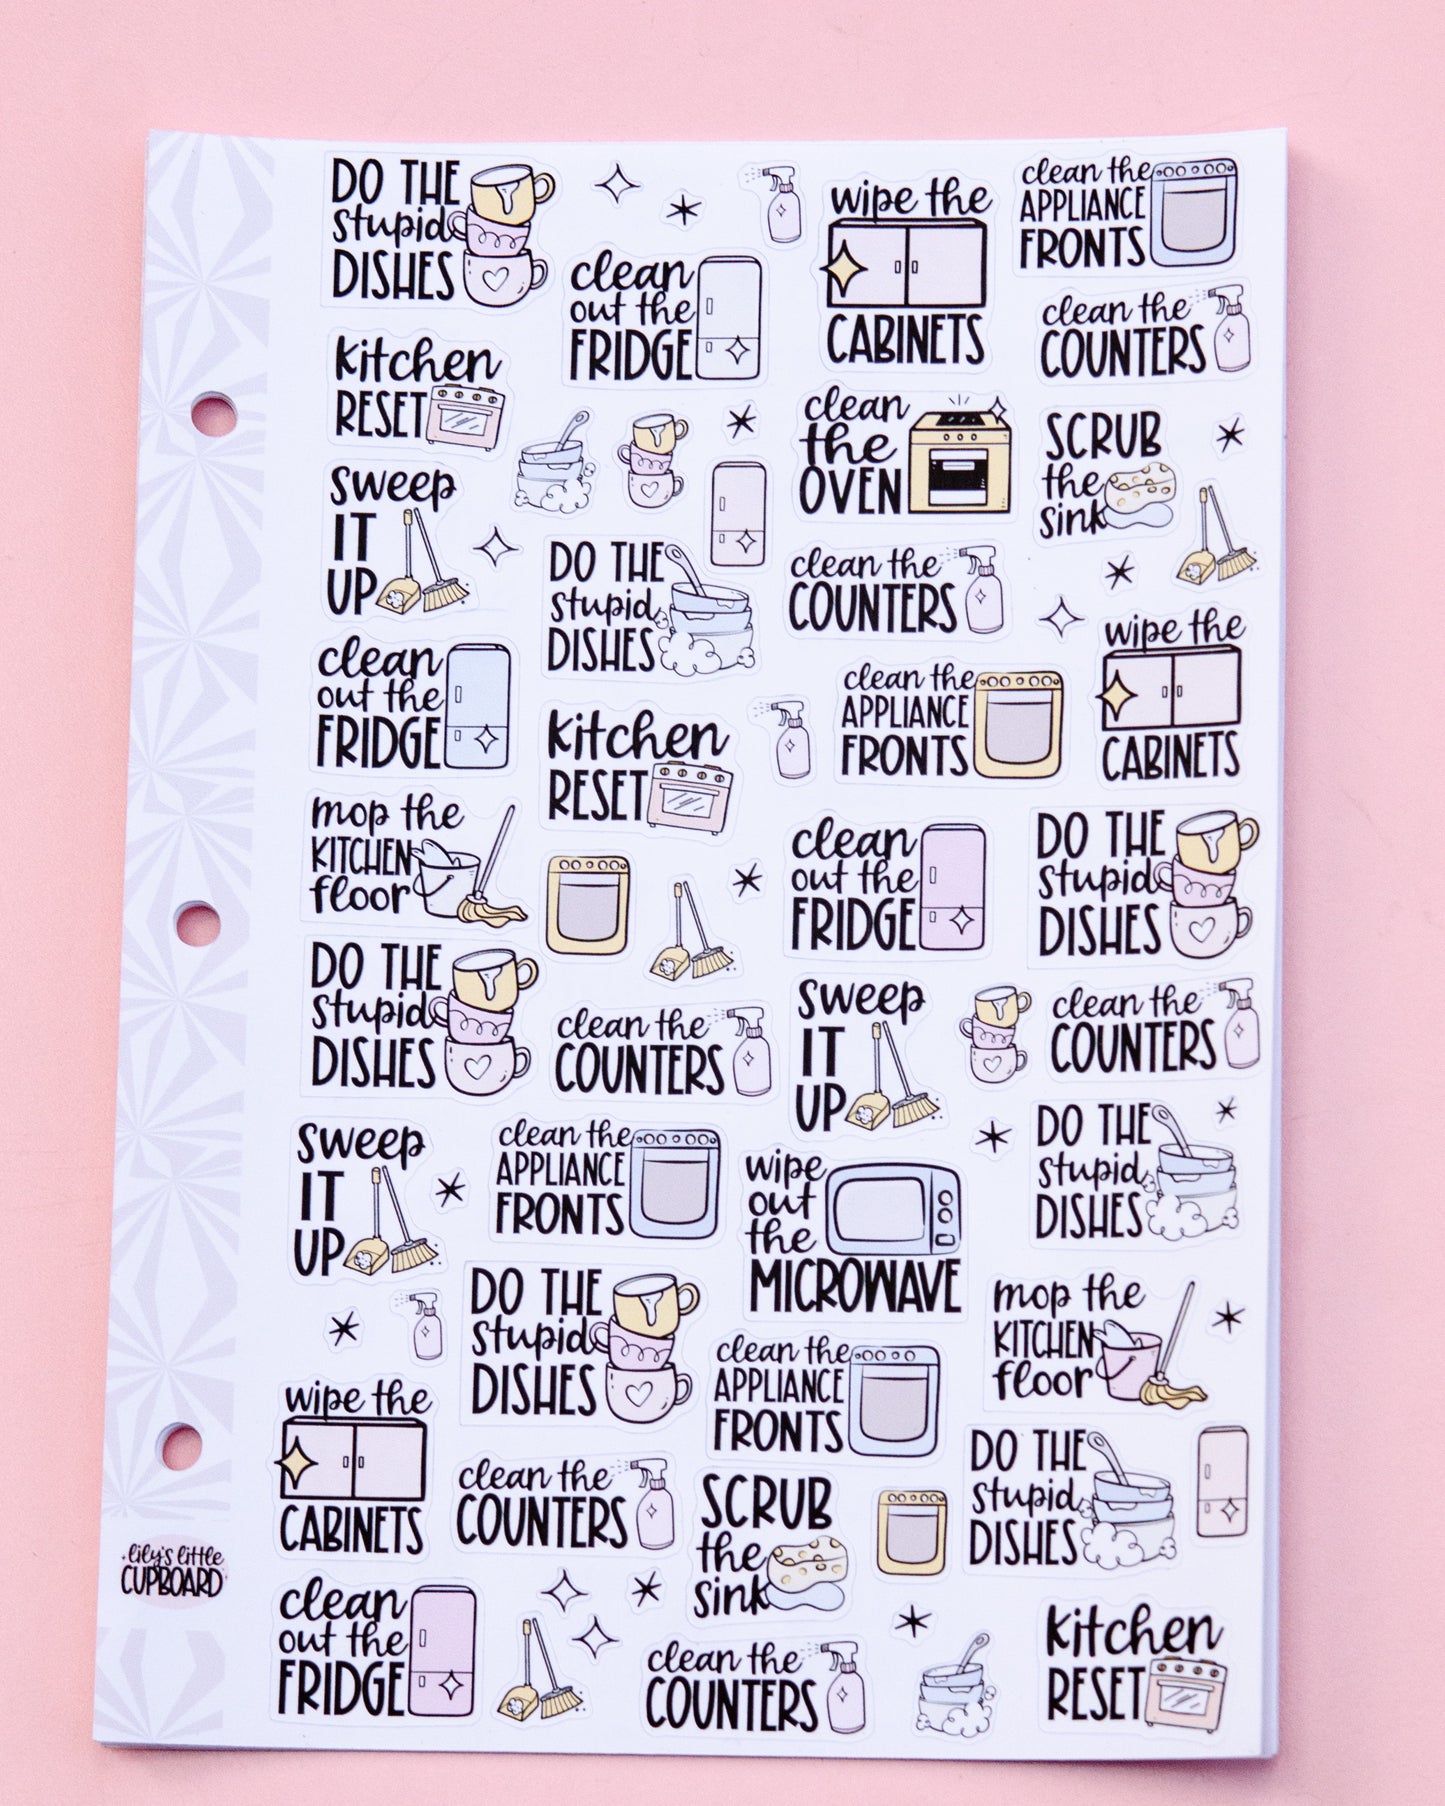 DO THE
stupid
DISHES
clean
out the
FRIDGE
wipe the
CABINETS
clean the
APPLIANCE
FRONTS
clean the
COUNTERS
kitchen
RESET
clean
the
OVEN
SCRUB
the
sink
sweep
IT
UP
DO THE
stupid
DISHES
clean the
COUNTERS
wipe the
CABINETS
clean
out the
FRIDGE
kitchen
RESET
clean the
APPLIANCE
FRONTS
mop the
KITCHEN
floor
clean
out the
FRIDGE
DO THE
stupid
DISHES
DO THE
stupid
DISHES
clean the
COUNTERS
sweep
IT
UP
clean the
COUNTERS
sweep
IT
UP
clean the
APPLIANCE
FRONTS
wipe
out
the
MICROWAVE
DO THE
stupid
DISHES
DO THE
stupid
DISHES
clean the
APPLIANCE
FRONTS
mop the
KITCHEN
floor
wipe the
CABINETS
clean the
COUNTERS
SCRUB
the
sink
DO THE
stupid
DISHES
lily's little
CUPBOARD
clean
out the
FRIDGE
clean the
COUNTERS
kitchen
RESET